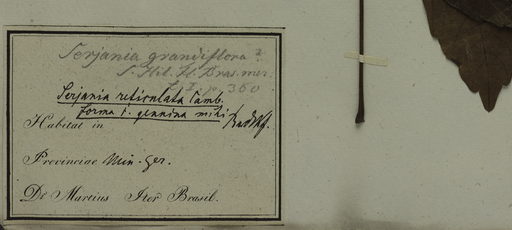 Serjania grandiflora?
S. Hil. Fl. Bras. mer.
I, p. 360
Serjania reticulata Camb.
forma 1. genuina mihi Radlk.
Habitat in
Provinciae Min. ger.
Dr Martius Iter Brasil.